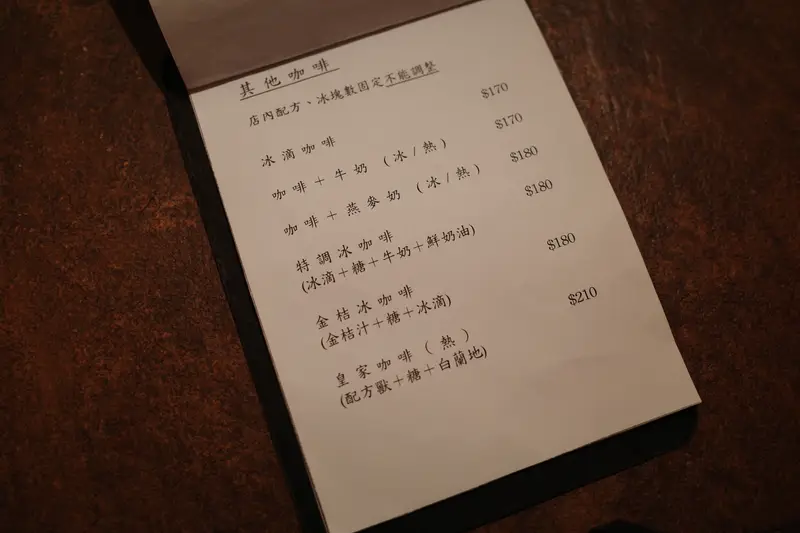 其他咖啡
店內配方、冰塊數固定不能調整
冰滴咖啡 $170
咖啡＋牛奶（冰/熱） $170
咖啡＋燕麥奶（冰/熱） $180
特調冰咖啡 $180
(冰滴＋糖＋牛奶＋鮮奶油)
金桔冰咖啡 $180
(金桔汁＋糖＋冰滴)
皇家咖啡（熱） $210
(配方獸＋糖＋白蘭地)